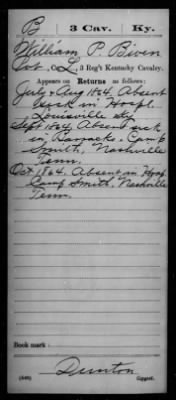 B 3 Cav. Ky.
William P. Biven
Pvt., Co. L, 3 Reg't Kentucky Cavalry.
Appears on Returns as follows:
July & Aug 1864. Absent
sick in Hospl.
Louisville Ky
Sept 1864. Absent sick
in Barrack. Camp
Smith, Nashville
Tenn.
Oct 1864. Absent in Hosp.
Camp Smith, Nashville
Tenn.
Book mark:
Dunton
(546) Copyist.